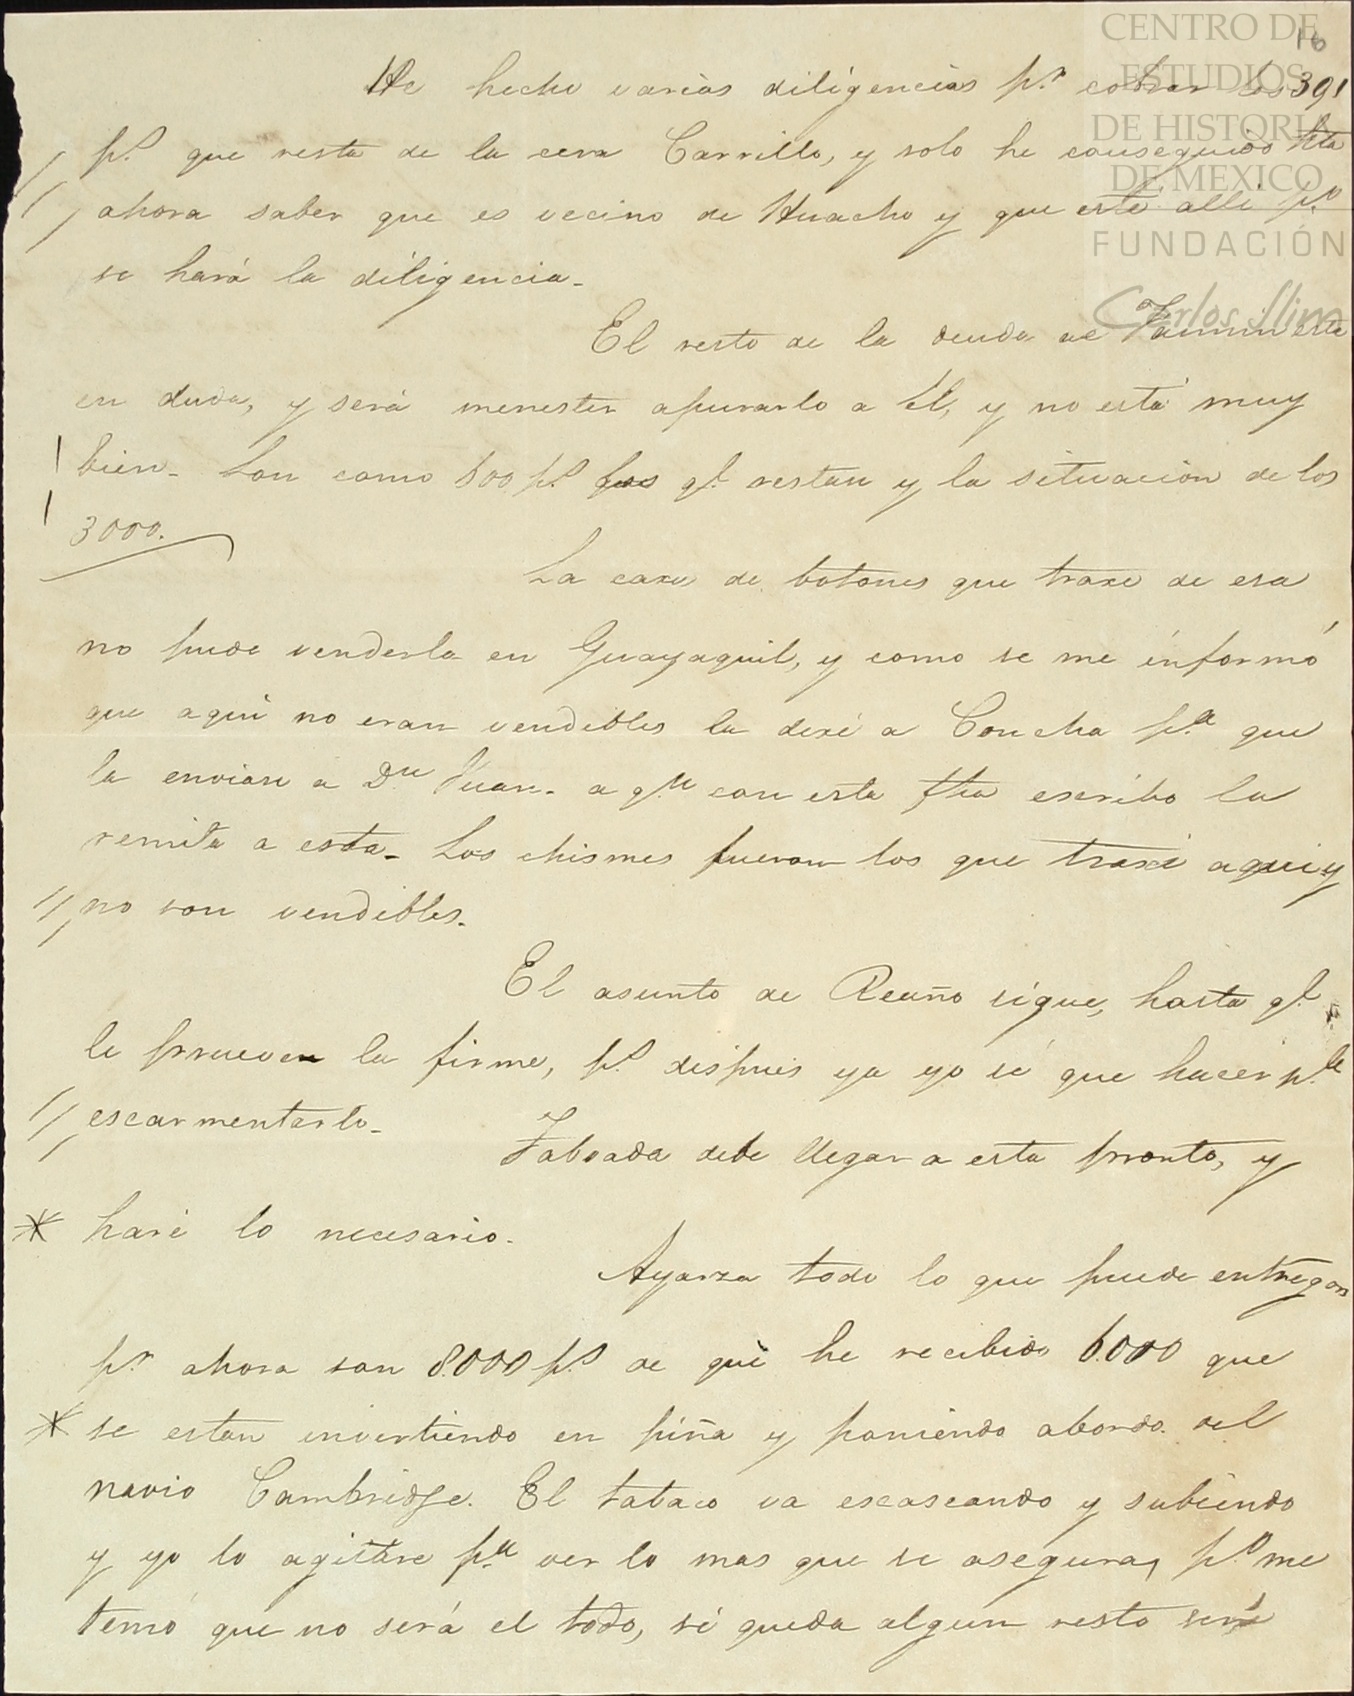 16
He hecho varias diligencias pr. cobrar los 391
ps. que resta de la cera Carrillo, y solo he conseguido hta
ahora saber que es vecino de Huacho y que está alli po.
se hará la diligencia.
El resto de la deuda de está
en duda, y será menester apurarlo a él, y no está muy
bien. Son como 600 ps. qe. restan y la situacion de los
3000.
La caxa de botones que traxe de esa
no pude venderla en Guayaquil, y como se me informó
que aqui no eran vendibles la dexé a Concha pa. que
la enviase a Dn. Juan. a qn. con esta fha escribo la
remita a esta. Los chismes fueron los que traxe aqui y
no son vendibles.
El asunto de Reaño sigue, hasta qe.
le prueven la firma, ps. despues ya yo sé que hacer pa.
escarmentarlo.
Taboada debe llegar a esta pronto, y
haré lo necesario.
Ayarza todo lo que puede entregar
pr. ahora son 8.000 ps. de que he recibido 6.000 que
se estan invirtiendo en piña y poniendo abordo del
navio Cambridge. El tabaco va escaseando y subiendo
y yo lo agitare pa. ver lo mas que se asegura, po. me
temo que no será el todo, si queda algun resto será
CENTRO DE
ESTUDIOS
DE HISTORIA
DE MEXICO
FUNDACIÓN
Carlos Slim